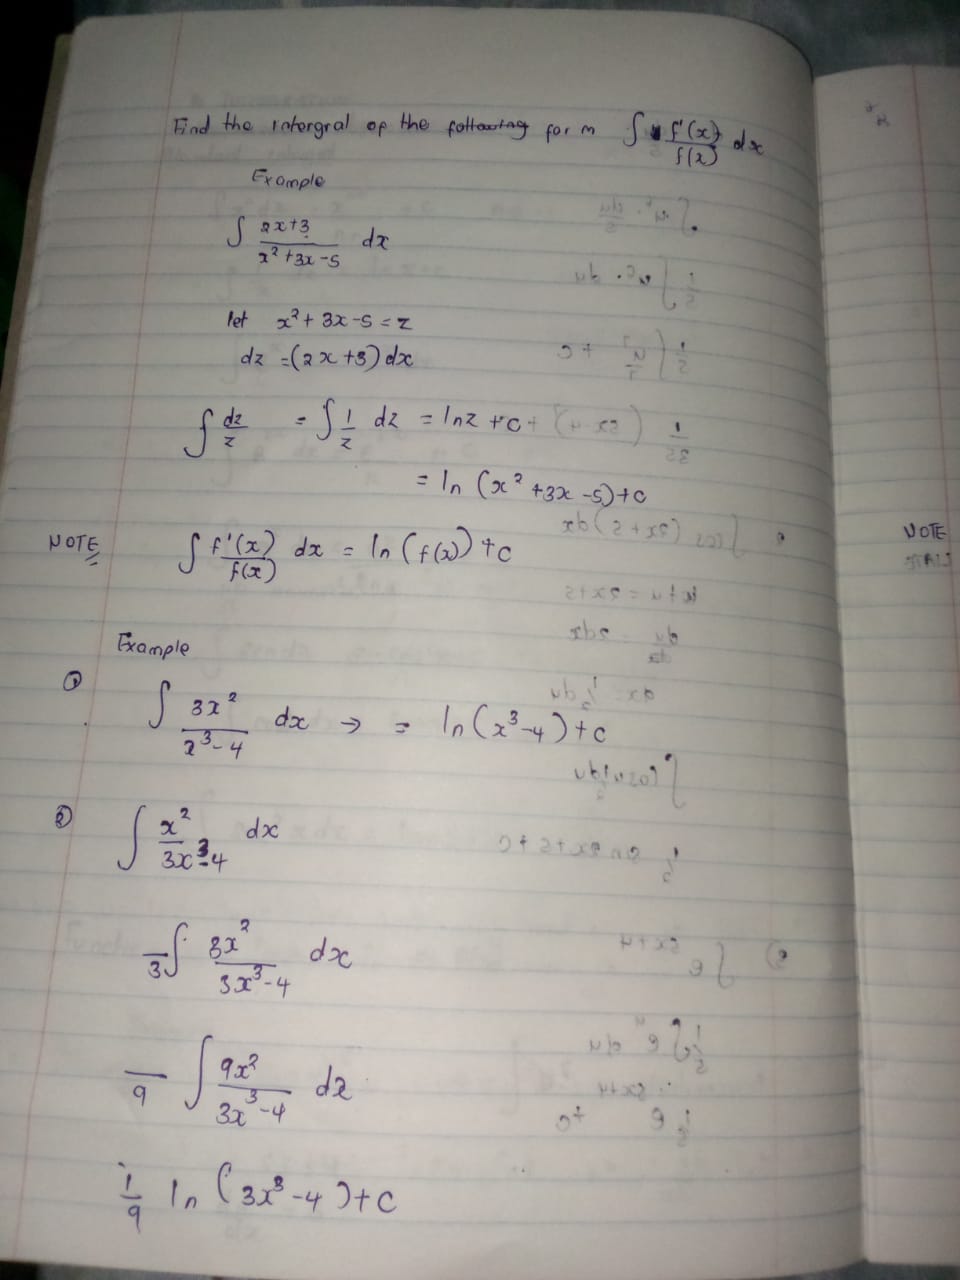 Find the intergral of the following form ∫ f'(x)/f(x) dx
Example
∫ 2x+3/x²+3x-5 dx
let x²+3x-5=z
dz=(2x+3)dx
∫ dz/z = ∫ 1/z dz = lnz +c
= ln (x²+3x-5)+c
NOTE ∫ f'(x)/f(x) dx = ln (f(x)) +c
Example
① ∫ 3x²/x³-4 dx → = ln(x³-4)+c
② ∫ x²/3x³-4 dx
—/3 ∫ 3x²/3x³-4 dx
—/9 ∫ 9x²/3x³-4 dx
1/9 ln (3x³-4)+c
NOTE